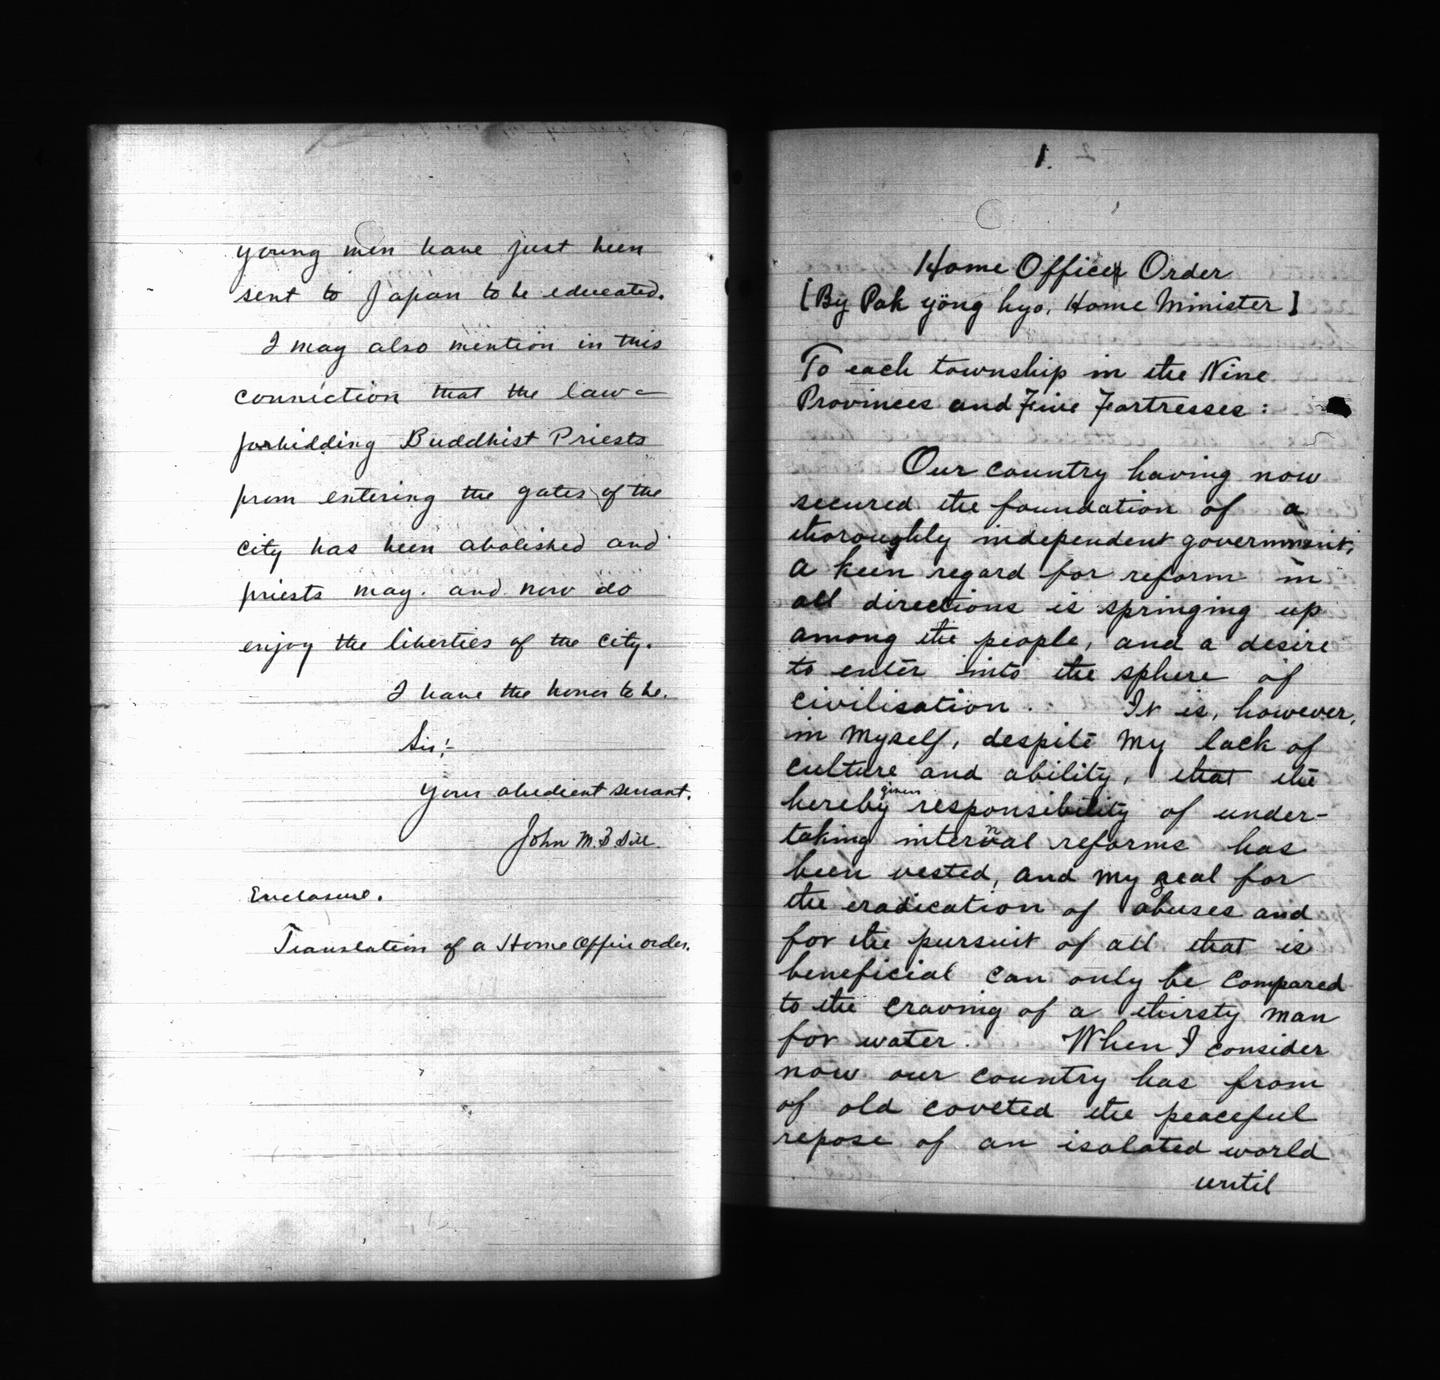 young men have just been
sent to Japan to be educated.
I may also mention in this
conviction that the law-
forbidding Buddhist Priests
from entering the gates of the
city has been abolished and
priests may. and now do
enjoy the liberties of the city.
I have the honor to be.
Sir:-
your obedient servant.
John M. B. Sill.
Enclosure.
Translation of a Home Office order.
1.
Home Office Order
[By Pak yöng hyo, Home Minister]
To each township in the Nine
Provinces and Five Fortresses:
Our country having now
secured the foundation of a
thoroughly independent government,
a keen regard for reform in
all directions is springing up
among the people, and a desire
to enter into the sphere of
civilisation. It is, however,
in myself, despite my lack of
culture and ability, that the
given
hereby responsibility of under-
taking internal reforms has
been vested, and my zeal for
the eradication of abuses and
for the pursuit of all that is
beneficial can only be compared
to the craving of a thirsty man
for water. When I consider
now our country has from
of old coveted the peaceful
repose of an isolated world
until